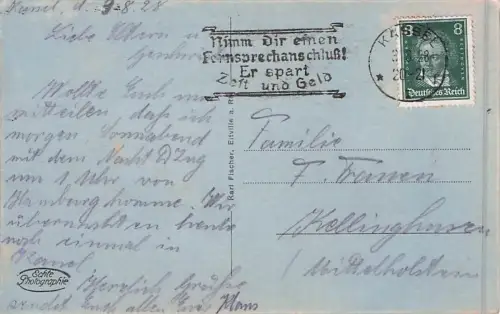 Kassel, d. 3.8.28
Liebe Eltern u.
Wollte Euch nur
mitteilen daß ich
morgen Sonnabend
mit dem Nacht D Zug
um 1 Uhr von
Hamburg komme. Wir
übernachten heute
noch einmal in
Kassel.
Herzlich Grüße
sendet Euch allen Euer Hans
Echte
Photographie
Nimm Dir einen
Fernsprechanschluß!
Er spart
Zeit und Geld
Karl Fischer, Eltville a. R
KASSEL
20-21
8
Deutsches Reich
Familie
F. Fransen
Kellinghusen
Mittelholstein